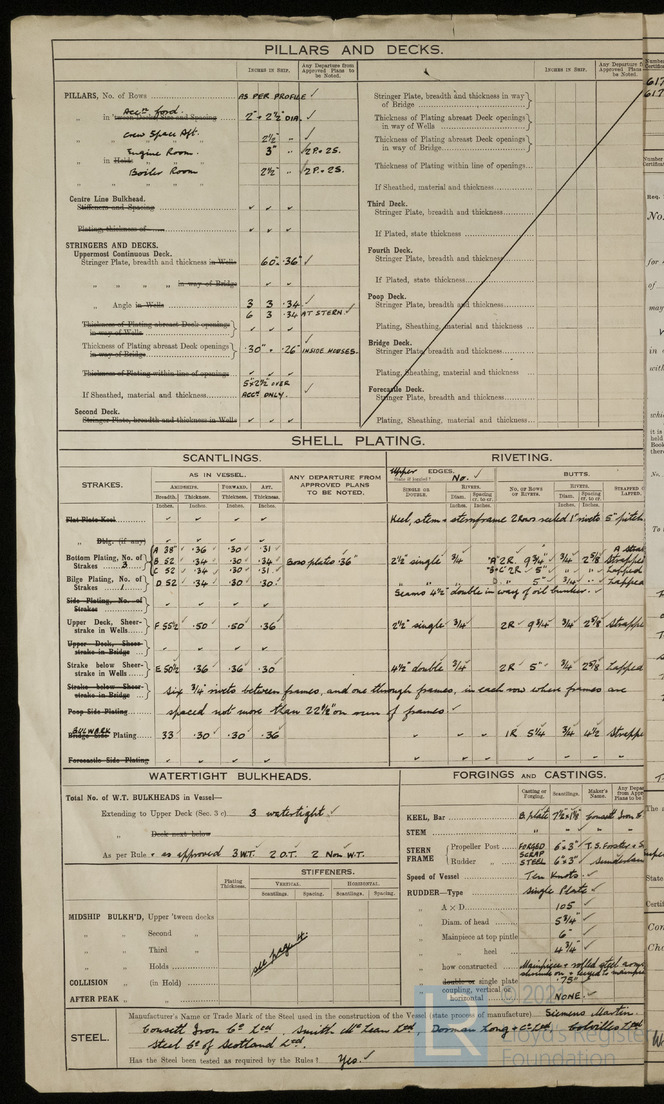 PILLARS AND DECKS.
INCHES IN SHIP. Any Departure from Approved Plans to be Noted.
PILLARS, No. of Rows AS PER PROFILE ✓
Accn ford.
" in 'tween Decks, Size and Spacing 2" + 2½" DIA. ✓
Crew Space Aft. 2½" " ✓
Engine Room. 3" " 2 P. + 2 S.
" in Holds
Boiler Room 2½" " 2 P. + 2 S.
Centre Line Bulkhead.
Stiffeners and Spacing ✓ ✓ ✓
Plating, thickness of ✓ ✓ ✓
STRINGERS AND DECKS.
Uppermost Continuous Deck.
Stringer Plate, breadth and thickness in Wells 60" × .36" ✓
" " " " in way of Bridge ✓ ✓
" Angle in Wells 3 3 .34 ✓
6 3 .34 AT STERN ✓
Thickness of Plating abreast Deck openings in way of Wells ✓ ✓ ✓
Thickness of Plating abreast Deck openings in way of Bridge .30" + .26" INSIDE HOUSES.
Thickness of Plating within line of openings ✓ ✓ ✓
If Sheathed, material and thickness 5" × 2½" OVER ACCN ONLY. ✓
Second Deck.
Stringer Plate, breadth and thickness in Wells ✓ ✓ ✓
INCHES IN SHIP. Any Departure from Approved Plans to be Noted.
Stringer Plate, breadth and thickness in way of Bridge
Thickness of Plating abreast Deck openings in way of Wells
Thickness of Plating abreast Deck openings in way of Bridge
Thickness of Plating within line of openings
If Sheathed, material and thickness
Third Deck.
Stringer Plate, breadth and thickness
If Plated, state thickness
Fourth Deck.
Stringer Plate, breadth and thickness
If Plated, state thickness
Poop Deck.
Stringer Plate, breadth and thickness
Plating, Sheathing, material and thickness
Bridge Deck.
Stringer Plate, breadth and thickness
Plating, Sheathing, material and thickness
Forecastle Deck.
Stringer Plate, breadth and thickness
Plating, Sheathing, material and thickness
SHELL PLATING.
SCANTLINGS.
RIVETING.
STRAKES.
AS IN VESSEL.
AMIDSHIPS. FORWARD. AFT.
Breadth. Thickness. Thickness. Thickness.
Inches. Inches. Inches. Inches.
ANY DEPARTURE FROM APPROVED PLANS TO BE NOTED.
Upper EDGES. No. ✓
BUTTS.
SINGLE OR DOUBLE. RIVETS. Diam. Spacing cr. to cr.
No. OF ROWS OF RIVETS. RIVETS. Diam. Spacing cr. to cr.
Flat Plate Keel ✓ ✓ ✓ ✓ Keel, stem & sternframe 2 Rows rested 1" rivets 5" pitch
" Dblg. (if any) ✓ ✓ ✓ ✓
Bottom Plating, No. of Strakes 3
A 38" .36 .30 .31
B 52 .34 .30 .34 Boss plates .36" 2½" single ¾ "A" 2R. 9¾" ¾ 2⅝ Strapped
C 52 .34 .30 .31 "B+C" 2R 5" " " Lapped
Bilge Plating, No. of Strakes 1 D 52 .34 .30 .30 " " D. " 5" ¾ " Lapped
Seams 4½" double in way of oil bunker. ✓
Side Plating, No. of Strakes ✓ ✓ ✓ ✓
Upper Deck, Sheer-strake in Wells F 55½ .50 .50 .36 2½" single ¾ 2R 9¾ ¾ 2⅝ Strappe
Upper Deck, Sheer-strake in Bridge ✓ ✓ ✓ ✓
Strake below Sheer-strake in Wells E 50½ .36 .36 .30 4½" double ¾ 2R 5" ¾ 2⅝ Lapped
Strake below Sheer-strake in Bridge Six ¾" rivets between frames, and one through frames, in each row where frames are
Poop Side Plating spaced not more than 22½" on mem of frames ✓
BULWARK
Bridge Side Plating 33 .30 .30 .36 1R 5¼ ¾ 4½ Strappe
Forecastle Side Plating ✓ ✓ ✓ ✓
WATERTIGHT BULKHEADS.
Total No. of W.T. BULKHEADS in Vessel—
Extending to Upper Deck (Sec. 3 c) 3 watertight ✓
" Deck next below
As per Rule + as approved 3 W.T. 2 O.T. 2 Non W.T.
Plating Thickness.
STIFFENERS.
VERTICAL. HORIZONTAL.
Scantlings. Spacing. Scantlings. Spacing.
MIDSHIP BULKH'D, Upper 'tween decks
" Second "
" Third "
" Holds
COLLISION " (in Hold)
AFTER PEAK " "
see page 4.
FORGINGS AND CASTINGS.
Casting or Forging. Scantlings. Maker's Name.
KEEL, Bar B. plate 7½" × 1⅞ Consett Iron
STEM " " " "
STERN FRAME
Propeller Post FORGED 6" × 3" T. S. Forster + S
SCRAP
Rudder " STEEL 6" × 3" Sunderlan
Speed of Vessel Ten Knots ✓
RUDDER—Type Single Plate ✓
" A × D 105 ✓
" Diam. of head 5¾" ✓
" Mainpiece at top pintle 6" ✓
" " heel 4¾" ✓
" how constructed
" double or single plate .75" ✓
" coupling, vertical or horizontal NONE. ✓
STEEL.
Manufacturer's Name or Trade Mark of the Steel used in the construction of the Vessel (state process of manufacture) Siemens Martin.
Consett Iron Co Ltd, Smith McLean Ltd, Dorman Long + Co Ltd, Colvilles Ltd
Steel Co of Scotland Ltd.
Has the Steel been tested as required by the Rules? Yes. ✓
LR
© 202
Lloyd's Registe
Foundation